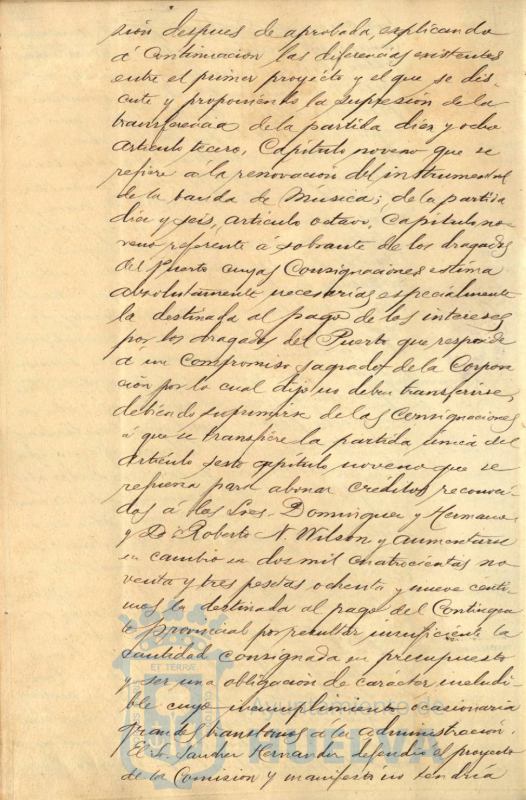 sión despues de aprobada, explicando
á Continuacion las diferencias existentes
entre el primer proyecto y el que se dis-
cute y proponiendo la supresión de la
transferencia de la partida diez y ocho
articulo tecero, Capítulo noveno que se
refiere á la renovacion del instrumental
de la banda de Música; de la partida
diez y seis, articulo octavo, Capítulo no-
veno referente á sobrante de los dragados
del Puerto cuyas Consignaciones estima
absolutamente necesarias especialmente
la destinada al pago de los intereses
por los dragados del Puerto que responde
á un Compromiso sagrado de la Corpora-
ción por lo cual dijo no deben transferirse,
debiendo suprimirse de las Consignaciones
á que se transfiere la partida única del
Artículo sesto capítulo noveno que se
refuerza para abonar créditos reconoci-
dos á los Sres. Dominguez y Hermano
y D. Roberto N. Wilson y aumentarse
en cambio en dos mil cuatrocientas no-
venta y tres pesetas ochenta y nueve centi-
mos la destinada al pago del Contingen-
te provincial por resultar insuficiente la
Cantidad consignada en presupuesto
y ser una obligacion de carácter ineludi-
ble cuyo incumplimiento ocasionaria
grandes trastornos á la administración.
El Sr. Sanchez Hernandez defendió el proyecto
de la Comision y manifestó no tendría
ET TERRÆ
HUELVA